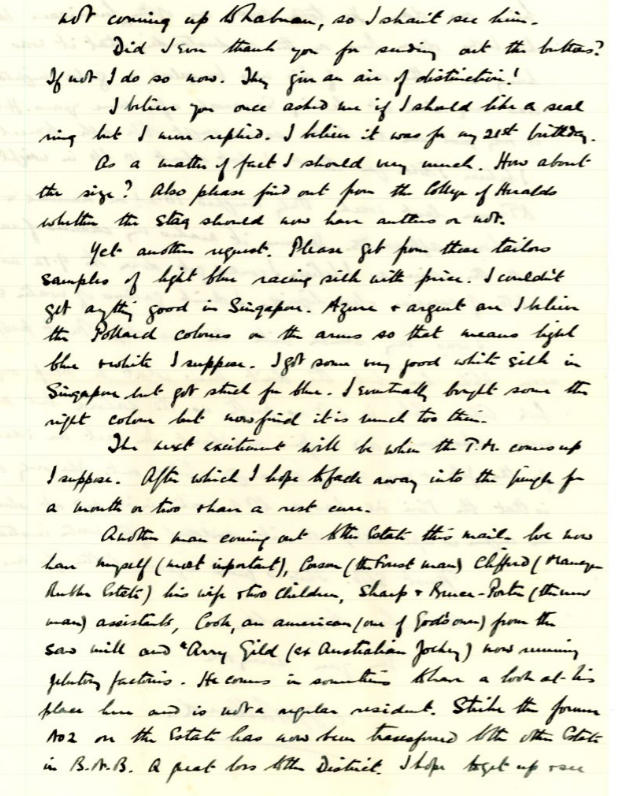 not coming up to Labuan, so I shan't see him.
Did I ever thank you for sending out the buttons?
If not I do so now. They give an air of distinction!
I believe you once asked me if I should like a seal
ring but I never replied. I believe it was for my 21st birthday.
As a matter of fact I should very much. How about
the size? Also please find out from the College of Heralds
whether the stag should now have antlers or not.
Yet another request. Please get from these tailors
samples of light blue racing silk with price. I couldn't
get anything good in Singapore. Azure & argent are I believe
the Pollard colours on the arms so that means light
blue & white I suppose. I got some very good white silk in
Singapore but got stuck for blue. I eventually bought some the
right colour but now find it is much too thin.
The next excitement will be when the T.H. comes up
I suppose. After which I hope to fade away into the jungle for
a month or two & have a rest cure.
Another man coming out to the Estate this mail. We now
have myself (most important), Corson (the Forest man) Clifford (Manager
Rubber Estate) his wife & two children, Sharp & Bruce-Porter (the new
man) assistants, Cook, an american (one of God's own) from the
saw mill and 'Arry Gild (ex Australian Jockey) now running
factories. He comes in sometimes to have a look at his
place here and is not a regular resident. Strike the former
No 2 on the Estate has now been transferred to the other Estate
in B.N.B. A great loss to the District. I hope to get up & see